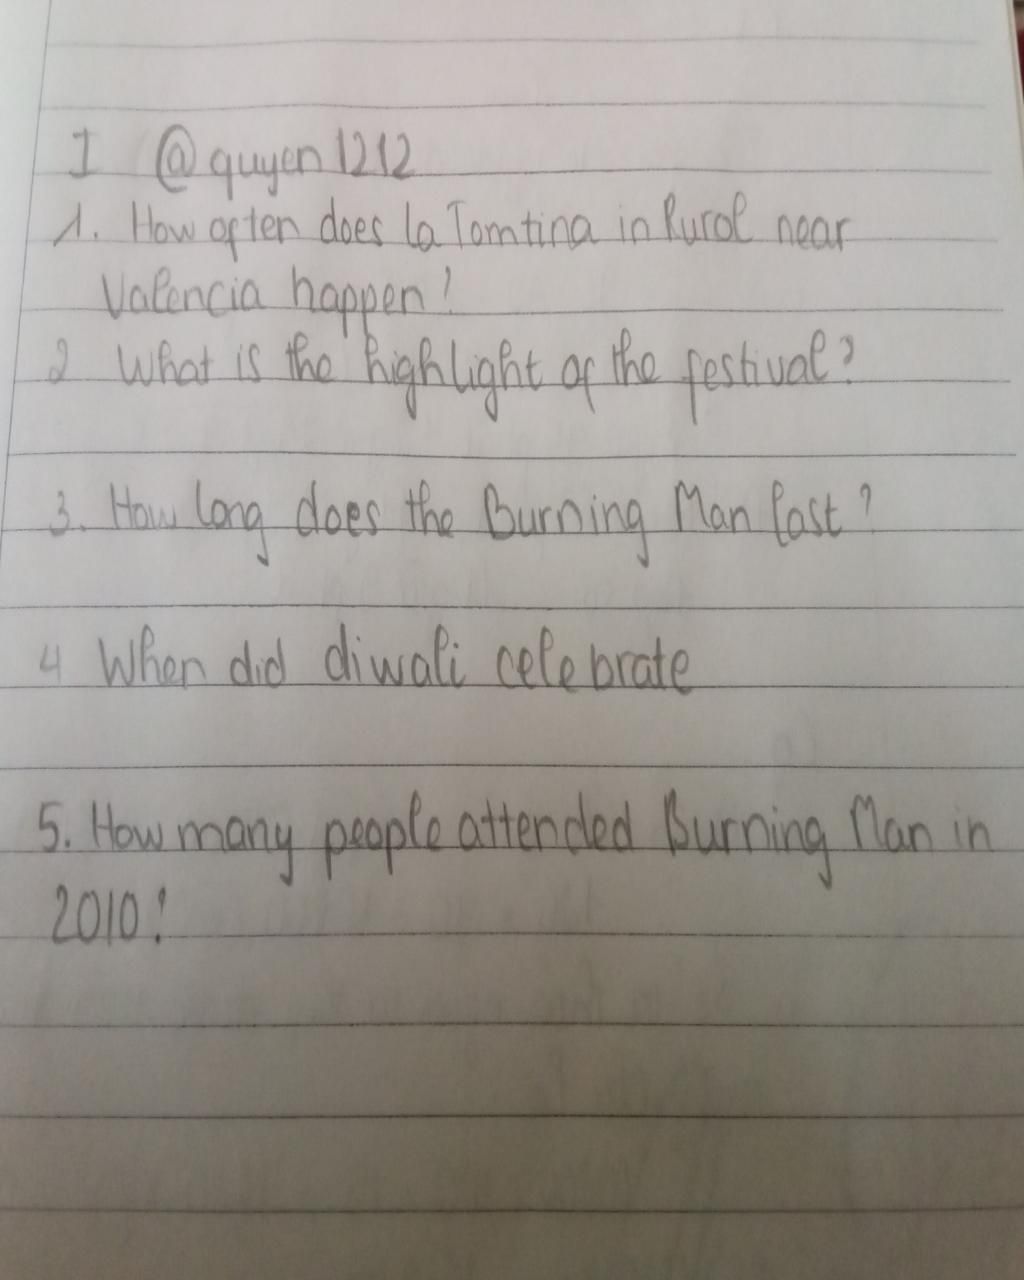 I @quyen1212
1. How often does la Tomtina in Rurol near
Valencia happen?
2 What is the highlight of the festival?
3. How long does the Burning Man last?
4 When did diwali celebrate
5. How many people attended Burning Man in
2010?